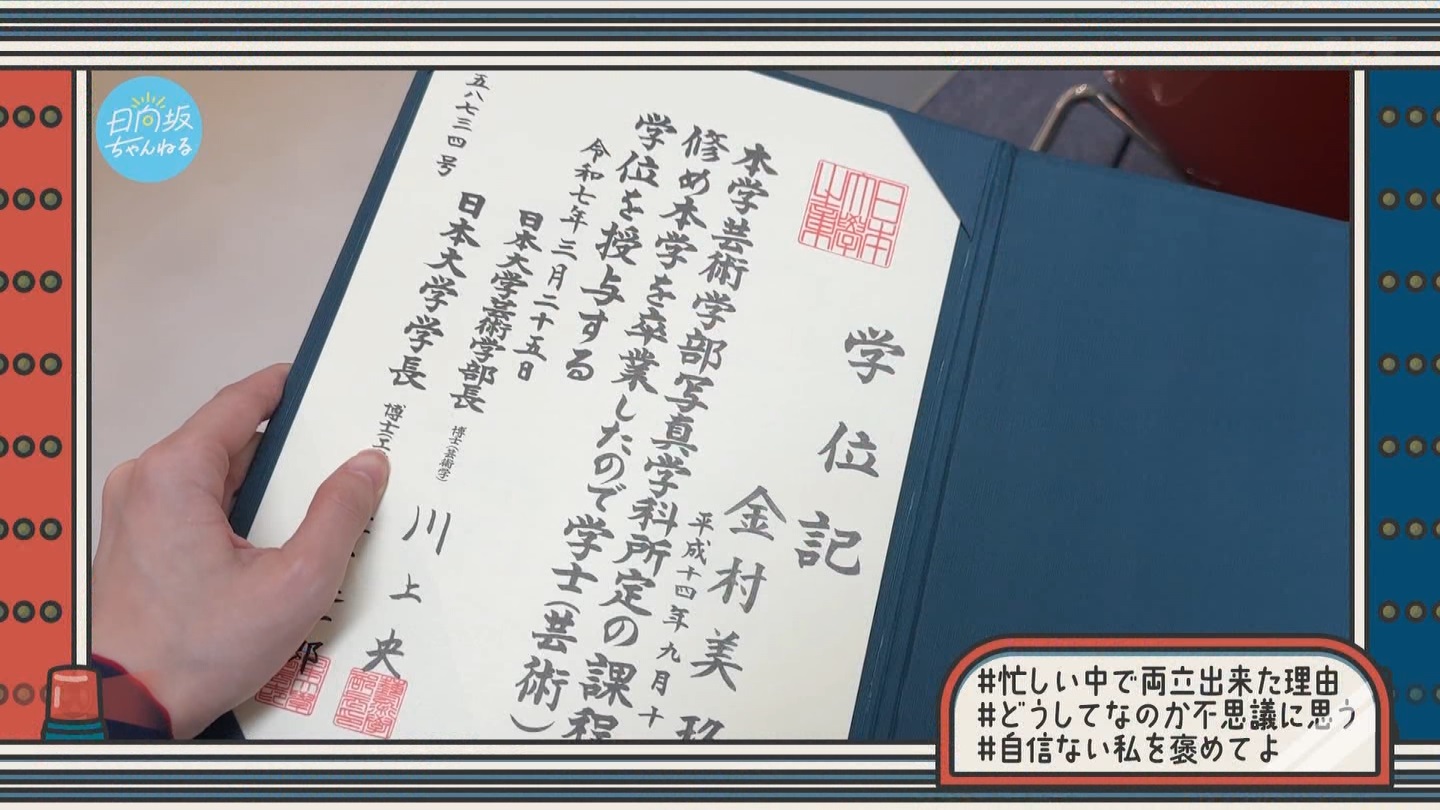 日向坂
ちゃんねる
学位記
金村美玖
平成十四年九月十
本学芸術学部写真学科所定の課程
修め本学を卒業したので学士（芸術）
学位を授与する
令和七年三月二十五日
日本大学芸術学部長 博士（芸術学） 川上央
日本大学学長 博士（工
五八七三四号
#忙しい中で両立出来た理由
#どうしてなのか不思議に思う
#自信ない私を褒めてよ